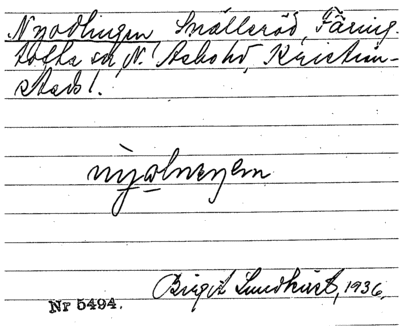 Nyodlingen, Snälleröd, Färing-
tofta sn, N. Åsbohd, Kristian-
stads l.
Birgit Lundkvist, 1936.
Nr 5494.